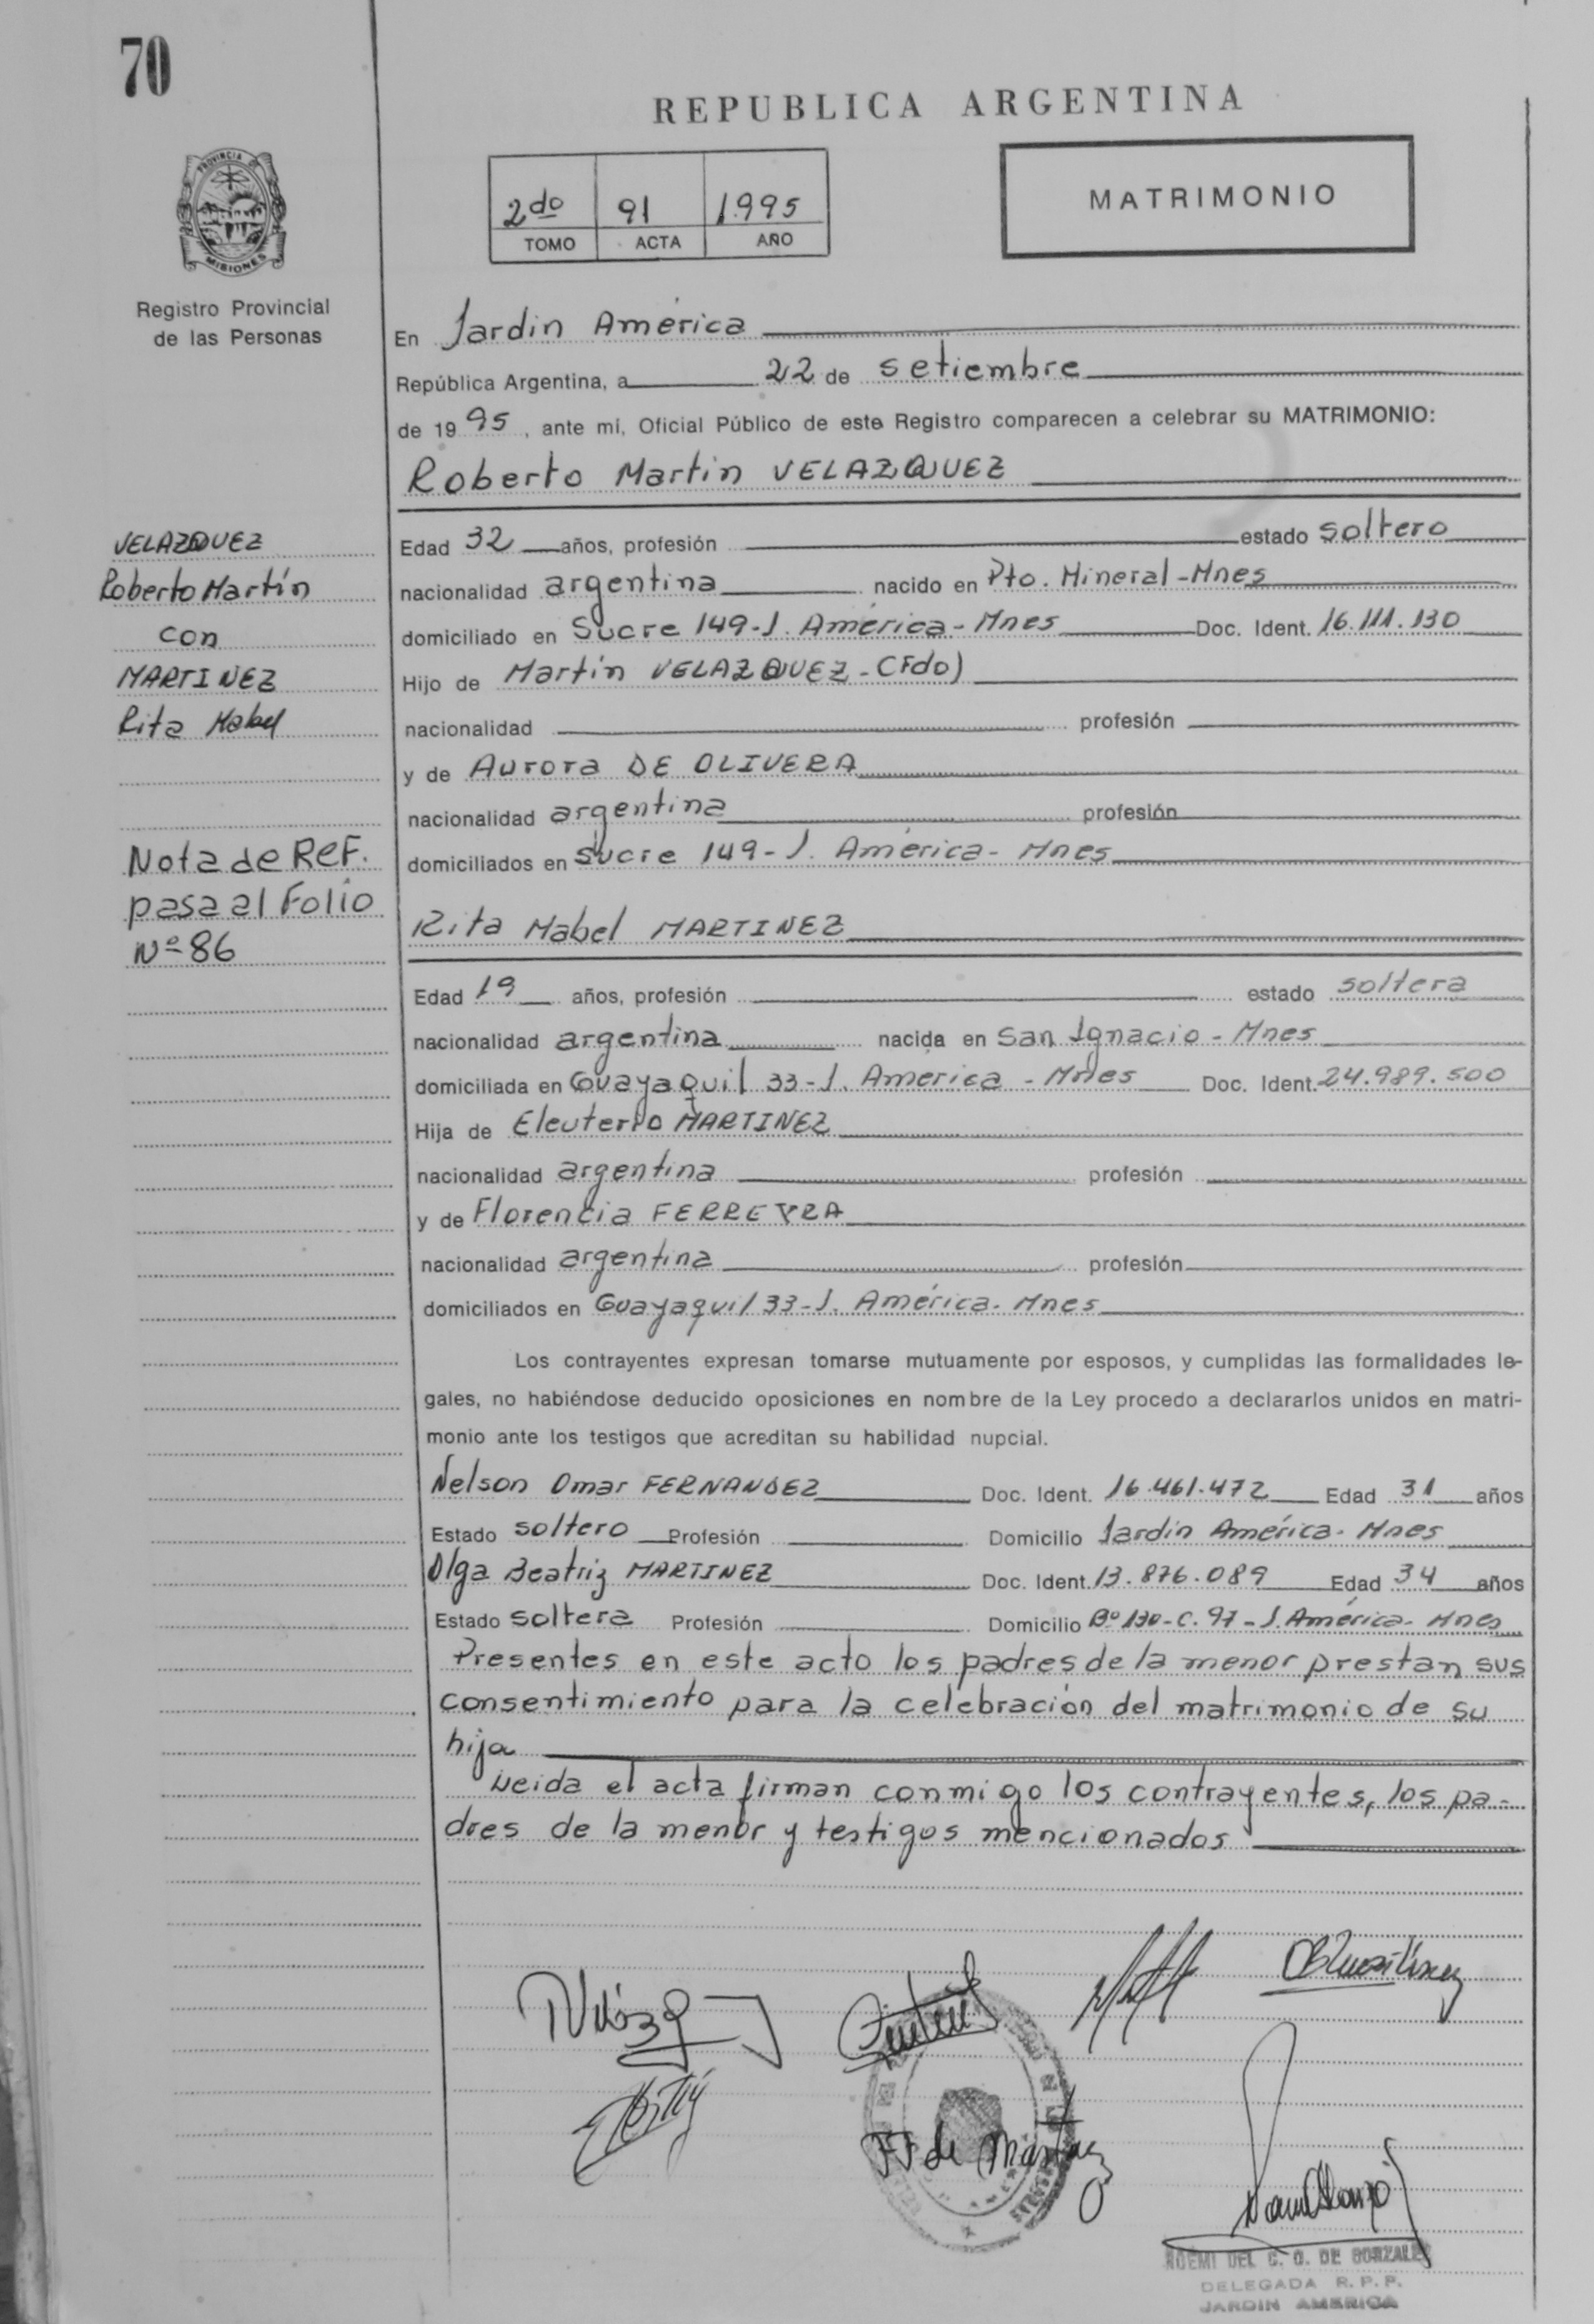 70
REPUBLICA ARGENTINA
PROVINCIA DE
MISIONES
Registro Provincial
de las Personas
2do 91 1995
TOMO ACTA AÑO
MATRIMONIO
En Jardin América
República Argentina, a 22 de setiembre
de 1995, ante mí, Oficial Público de este Registro comparecen a celebrar su MATRIMONIO:
Roberto Martin VELAZQUEZ
VELAZQUEZ
Roberto Martín
con
MARTINEZ
Rita Mabel
Nota de Ref.
pasa al Folio
Nº 86
Edad 32 años, profesión estado soltero
nacionalidad argentina nacido en Pto. Mineral-Mnes
domiciliado en Sucre 149-J. América-Mnes Doc. Ident. 16.111.130
Hijo de Martín VELAZQUEZ-(Fdo)
nacionalidad profesión
y de Aurora DE OLIVERA
nacionalidad argentina profesión
domiciliados en Sucre 149-J. América-Mnes
Rita Mabel MARTINEZ
Edad 19 años, profesión estado soltera
nacionalidad argentina nacida en San Ignacio-Mnes
domiciliada en Guayaquil 33-J. América-Mnes Doc. Ident. 24.989.500
Hija de Eleuterio MARTINEZ
nacionalidad argentina profesión
y de Florencia FERREYRA
nacionalidad argentina profesión
domiciliados en Guayaquil 33-J. América-Mnes
Los contrayentes expresan tomarse mutuamente por esposos, y cumplidas las formalidades le-
gales, no habiéndose deducido oposiciones en nombre de la Ley procedo a declararlos unidos en matri-
monio ante los testigos que acreditan su habilidad nupcial.
Nelson Omar FERNANDEZ Doc. Ident. 16.461.472 Edad 31 años
Estado soltero Profesión Domicilio Jardin América-Mnes
Olga Beatriz MARTINEZ Doc. Ident. 13.876.089 Edad 34 años
Estado soltera Profesión Domicilio Bº 130-C. 97-J. América-Mnes
Presentes en este acto los padres de la menor prestan sus
consentimiento para la celebración del matrimonio de su
hija
Leida el acta firman conmigo los contrayentes, los pa-
dres de la menor y testigos mencionados
FF de Martinez
NOEMI DEL C. O. DE GONZALEZ
DELEGADA R.P.P.
JARDIN AMERICA